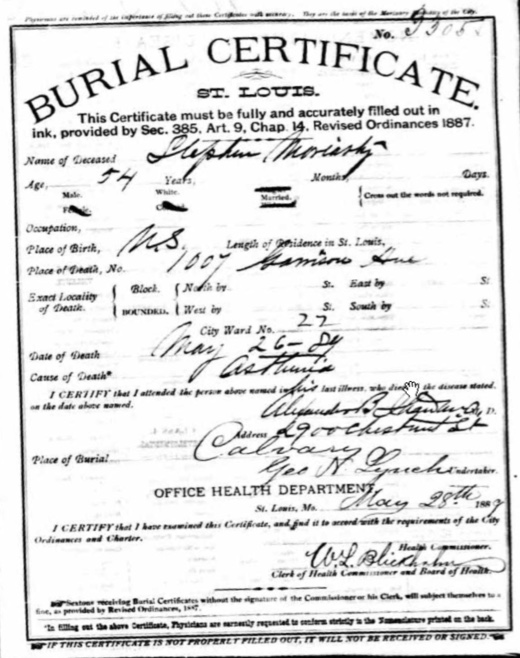 Physicians are reminded of the importance of filling out these Certificates with accuracy. They are the basis of the Mortuary of the City.
No. 9305
BURIAL CERTIFICATE.
ST. LOUIS.
This Certificate must be fully and accurately filled out in
ink, provided by Sec. 385, Art. 9, Chap. 14, Revised Ordinances 1887.
Name of Deceased Stephen Moriarty
Age, 54 Years, Months, Days.
Male. White. Married. Cross out the words not required.
Female. Colored.
Occupation,
Place of Birth, U.S. Length of Residence in St. Louis,
Place of Death, No. 1007 Garrison Ave
Exact Locality of Death. Block. North by St. East by St
BOUNDED. West by St. South by St
City Ward No. 22
Date of Death May 26-89
Cause of Death* Asthenia
I CERTIFY that I attended the person above named in his last illness, who died of the disease stated
on the date above named.
Alexander B. M. D.
Address 2900 Chestnut St
Place of Burial Calvary
Geo N Lynch Undertaker.
OFFICE HEALTH DEPARTMENT,
St. Louis, Mo. May 28th 1889
I CERTIFY that I have examined this Certificate, and find it to accord with the requirements of the City
Ordinances and Charter.
Health Commissioner.
W. L.
Clerk of Health Commissioner and Board of Health.
Sextons receiving Burial Certificates without the signature of the Commissioner or his Clerk, will subject themselves to a
fine, as provided by Revised Ordinances, 1887.
*In filling out the above Certificate, Physicians are earnestly requested to conform strictly to the Nomenclature printed on the back.
IF THIS CERTIFICATE IS NOT PROPERLY FILLED OUT, IT WILL NOT BE RECEIVED OR SIGNED.